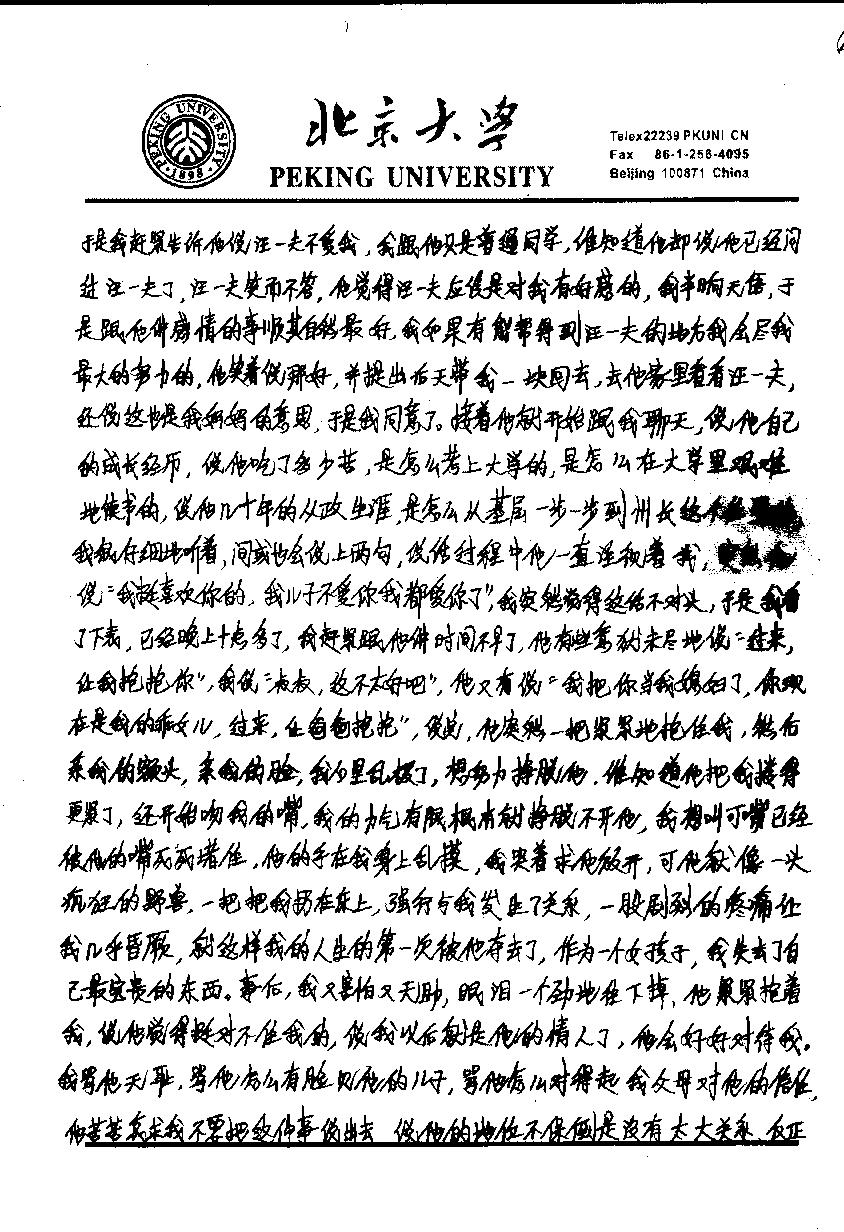 北京大学
PEKING UNIVERSITY
PEKING UNIVERSITY
·1898·
Telex22239 PKUNI CN
Fax 86-1-256-4095
Beijing 100871 China
于是我赶紧告诉他说汪一夫不爱我，我跟他只是普通同学，谁知道他却说他已经问
过汪一夫了，汪一夫笑而不答，他觉得汪一夫应该是对我有好感的，我半晌无语，于
是跟他讲感情的事顺其自然最好，我如果有能帮得到汪一夫的地方我会尽我
最大的努力的，他笑着说那好，并提出后天带我一块回去，去他家里看看汪一夫，
还说这也是我妈妈的意思，于是我同意了。接着他就开始跟我聊天，说他自己
的成长经历，说他吃了多少苦，是怎么考上大学的，是怎么在大学里艰难
地读书的，说他几十年的从政生涯，是怎么从基层一步一步到州长
我就仔细地听着，间或也会说上两句，说话过程中他一直注视着我，
说“我挺喜欢你的，我儿子不爱你我都爱你了”我突然觉得这话不对头，于是我看
了下表，已经晚上十点多了，我赶紧跟他讲时间不早了，他有些意犹未尽地说“过来，
让我抱抱你”，我说“叔叔，这不太好吧”，他又有说“我把你当我媳妇了，你现
在是我的乖女儿，过来，让爸爸抱抱”，说完，他突然一把紧紧地抱住我，然后
亲我的额头，亲我的脸，我心里乱极了，想努力挣脱他，谁知道他把我搂得
更紧了，还开始吻我的嘴，我的力气有限根本就挣脱不开他，我想叫可嘴已经
被他的嘴死死堵住，他的手在我身上乱摸，我哭着求他放开，可他就像一头
疯狂的野兽，一把把我扔在床上，强行与我发生了关系，一股剧烈的疼痛让
我几乎昏厥，就这样我的人生的第一次被他夺去了，作为一个女孩子，我失去了自
己最宝贵的东西。事后，我又害怕又无助，眼泪一个劲地往下掉，他紧紧抱着
我，说他觉得挺对不住我的，说我以后就是他的情人了，他会好好对待我。
我骂他无耻，骂他怎么有脸见他的儿子，骂他怎么对得起我父母对他的信任，
他苦苦哀求我不要把这件事说出去 说他的地位不保倒是没有太大关系，反正